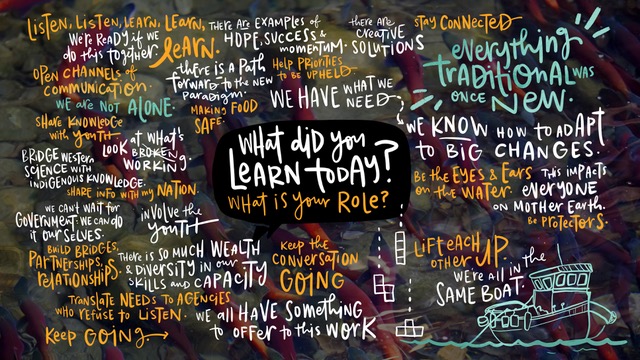 Listen, Listen, Learn, Learn,
Learn.
We're Ready if we
do this together.
Open channels of
communication.
We are not alone.
Share knowledge
with youth
Look at what's
broken
working.
Bridge Western
science with
Indigenous knowledge
Share info with my Nation.
We can't wait for
Government we can do
it ourselves.
involve the
youth
Build bridges,
partnerships, &
relationships
There is so much wealth
& diversity in our
skills and capacity
Translate needs to agencies
who refuse to listen.
Keep going
There are examples of
hope, success &
momentum.
there are
creative
solutions
there is a path
forward to the new
paradigm.
Help priorities
to be upheld
Making food
safe.
We have what we
need
What did you
learn today?
What is your role?
Keep the
conversation
going
We all have something
to offer to this work
Stay connected
everything
traditional was
once new.
We know how to adapt
to big changes.
Be the eyes & ears
on the water.
This impacts
everyone
on Mother Earth.
Be protectors.
Lift each
other up.
We're all in the
same boat.